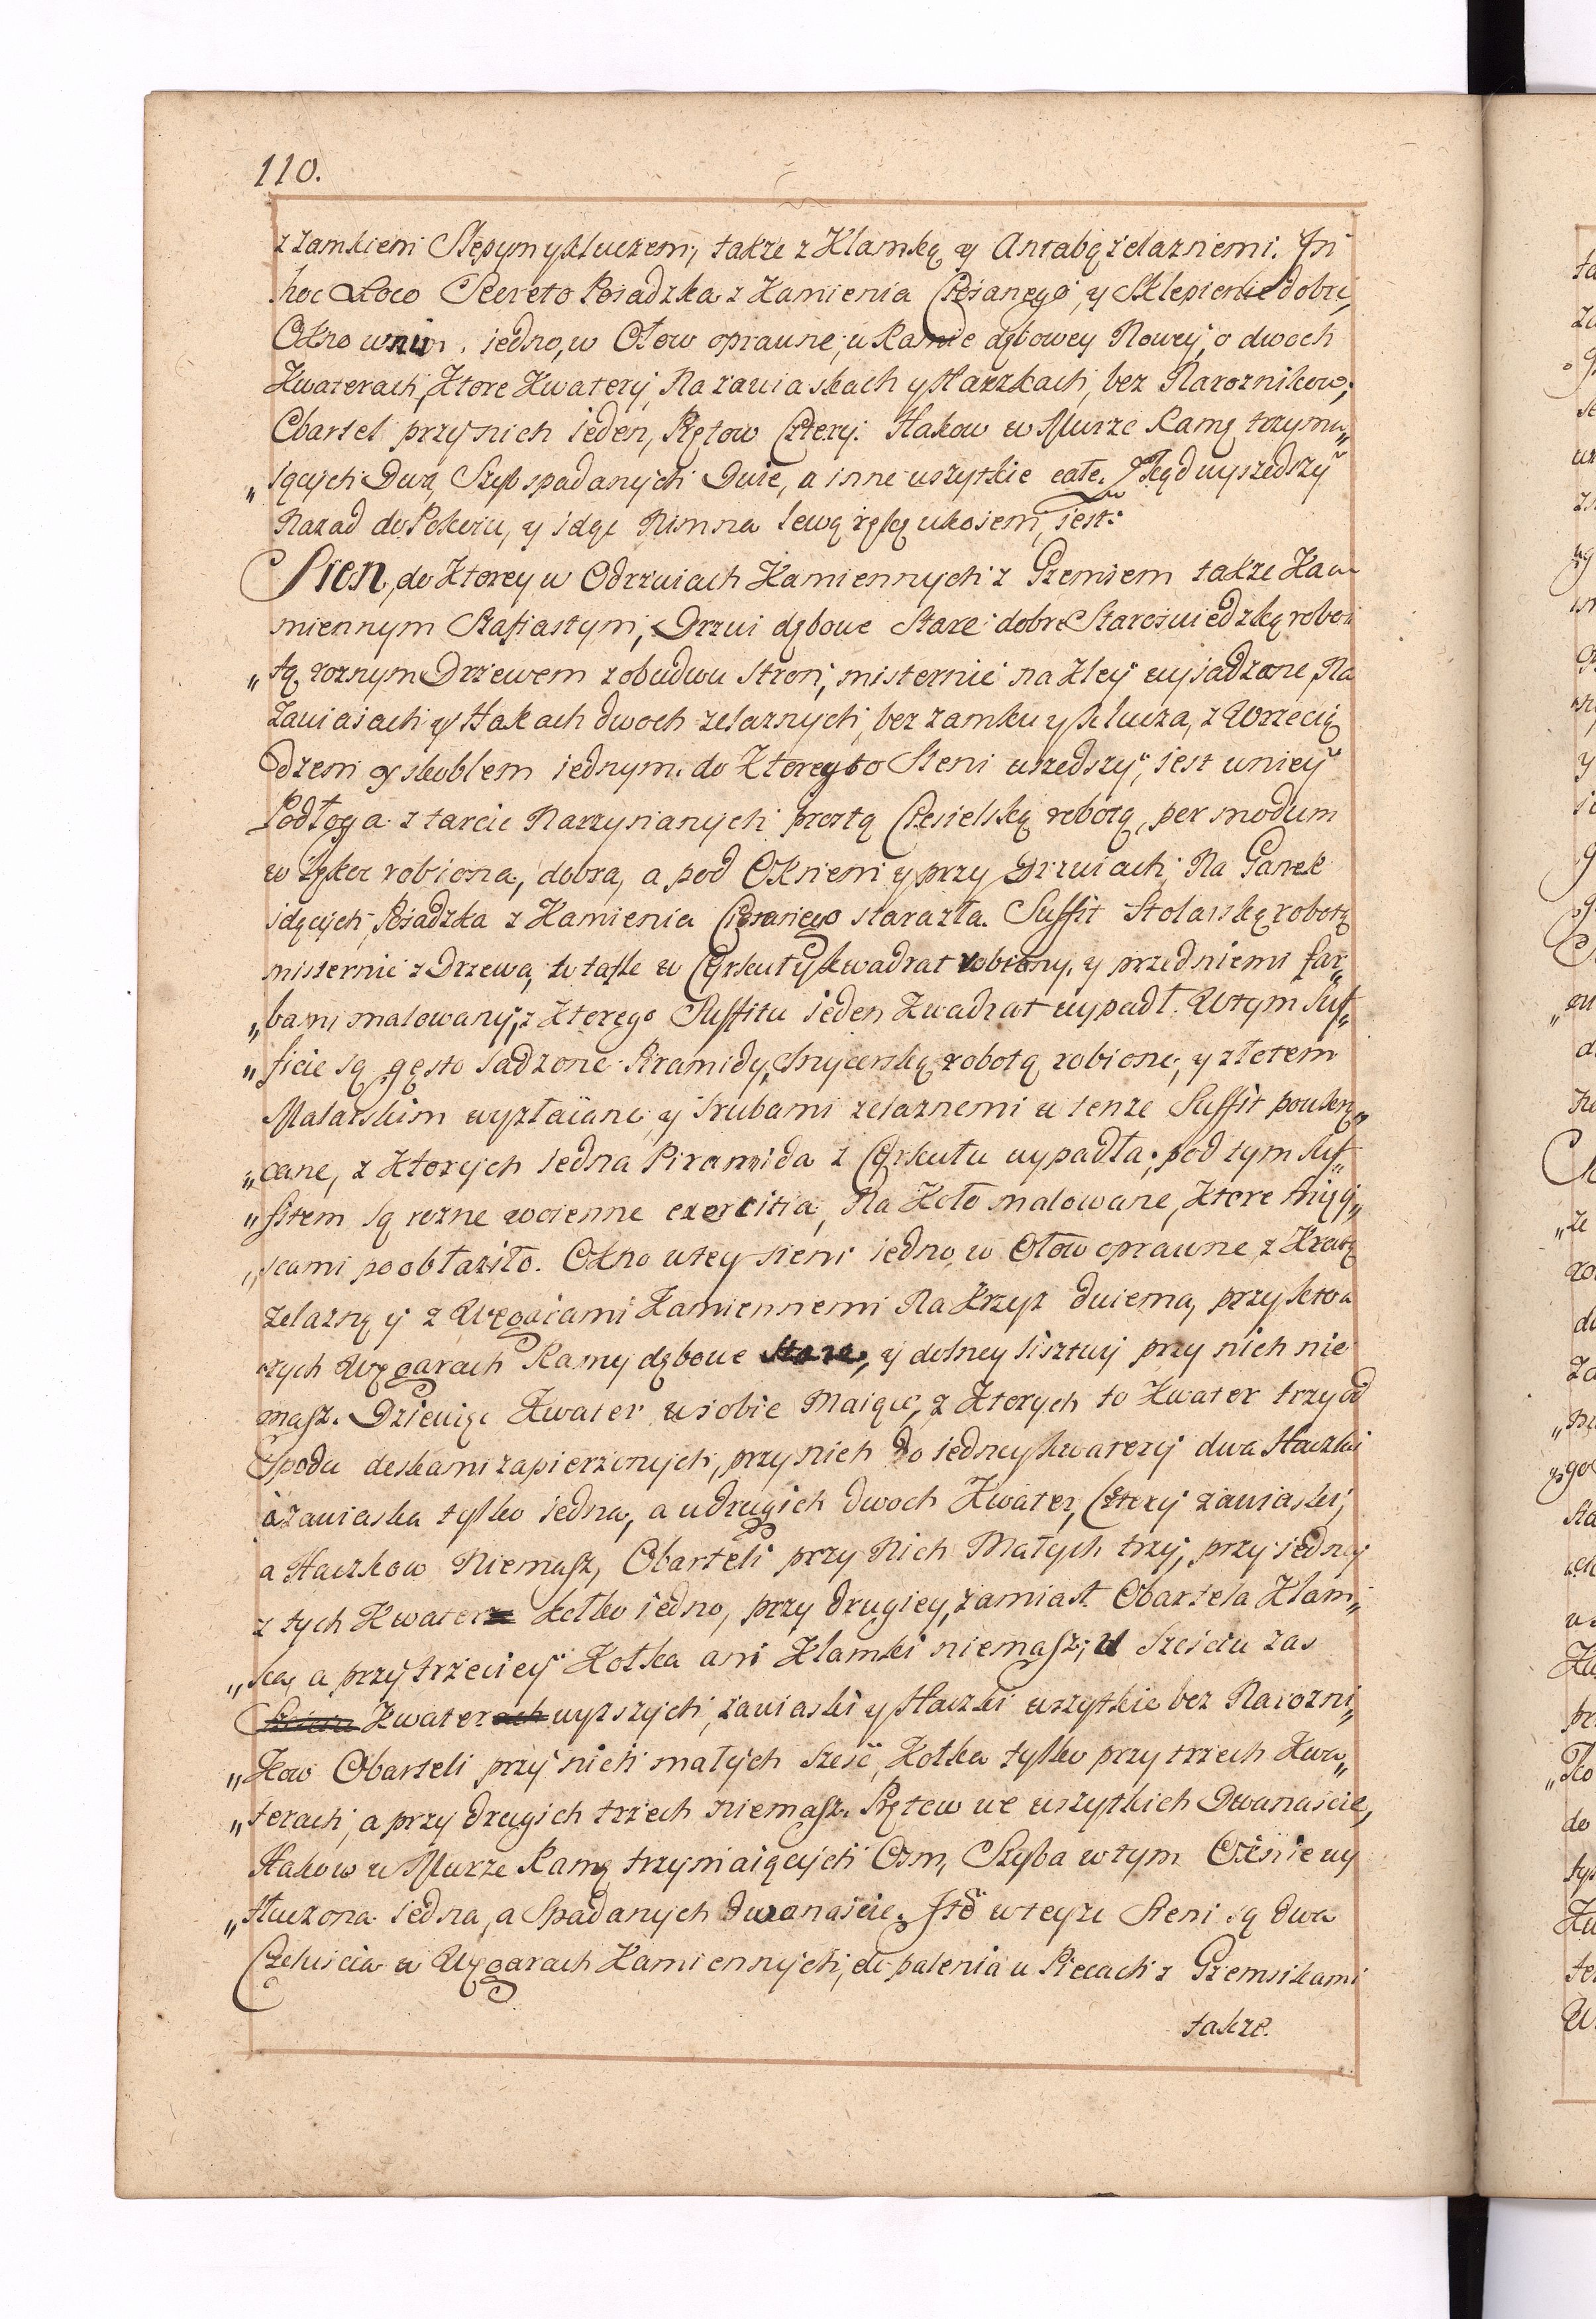 110.
z zamkiem Slepym y kluczem, także z Klamką y Antabą żelaznemi. In
hoc Loco Secreto Posadzka z Kamienia Ciosanego, y Sklepienie dobre,
Okno w nim jedno, w Ołow oprawne, w Ramie dębowey Nowey, o dwoch
Kwaterach, Ktore Kwatery Na zawiaskach y Haczkach, bez Naroznikow,
Obartel przy nich ieden, Prętow Cztery. Hakow w Murze Ramę trzyma„
„iących Dwa, Szyb spadanych Dwie, a inne wszytkie całe. Zkąd wyszedszy
Nazad do Pokoiu, y idąc Nim na lewą rękę ukosem, jest:
Sien, do Ktorey w Odrzwiach Kamiennych z Gzemsem także Ka„
miennym Szafiastym, Drzwi dębowe Stare dobre Staroświedzką robo„
„tą roznym Drzewem z obudwu stron, misternie na Kley wysadzone, Na
Zawiasach y Hakach dwoch zelaznych, bez zamku y klucza, z Wrzecią
dzem y skoblem iednym. do Ktorey to Sieni wszedszy, jest w niey
Podłoga z tarcic Narzynanych prostą Ciesielską robotą, per modum
w Tafle robiona, dobra, a pod Oknem y przy Drzwiach, Na Ganek
idących, Posadzka z Kamienia Ciosanego stara zła. Suffit Stolarską robotą
misternie z Drzewa, w tafle w Cyrkuł y kwadrat robiony, y przedniemi far„
„bami malowany, z Ktorego Suffitu ieden Kwadrat wypadł. W tym Suf„
„ficie są gęsto sadzone Piramidy, Snycerską robotą robione, y złotem
Malarskim wyzłacane, y śrubami zelaznemi w tenze Suffit powkrę„
„cane, z Ktorych iedna Piramida z Cyrkułu wypadła. pod tym Suf„
„fitem są rozne woienne exercitia, Na Koło malowane, Ktore mięy„
„scami poobłaziło. Okno w tey sieni iedno, w Ołow oprawne, z Kratą
zelazną y z Węgarami Kamiennemi Na Krzyz dwiema, przy kto„
rych Węgarach Ramy dębowe stare, y dolney lisztwy przy nich nie
masz. Dziewięć Kwater w sobie Maiące, z Ktorych to Kwater trzy od
Spodu deskami zapierzonych, przy nich do iedney kwatery dwa Haczki
a zawiaska tylko iedna, a u drugich dwoch Kwater, Cztery zawiaski,
a Haczkow Niemasz, Obarteli przy Nich Małych trzy, przy iedney
z tych Kwater Kołko iedno, przy drugiey, zamiast Obartela Klam„
„ka, a przy trzeciey Kołka ani Klamki niemasz; U Sześciu zas
Kwater wyzszych, zawiaski y Haczki wszytkie bez Narozni„
„kow Obarteli przy nich małych Sześć, Kołka tylko przy trzech Kwa„
„terach, a przy drugich trzech niemasz. Prętow we wszytkich Dwanascie,
Hakow w Murze Ramę trzymaiących Osm, Szyba w tym Oknie wy
„tłuczona iedna, a Spadanych dwanaście. Item w teyze Sieni są dwa
Czeluscia w Węgarach Kamiennych, do palenia w Piecach z Gzemsikami
także.